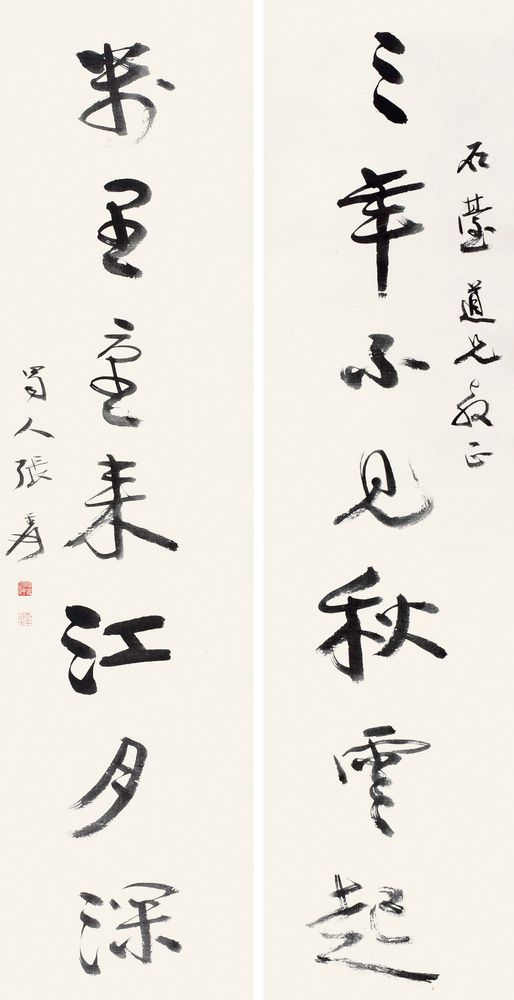 石臺道兄教正
三年不見秋雲起
萬里重來江月深
蜀人張爰